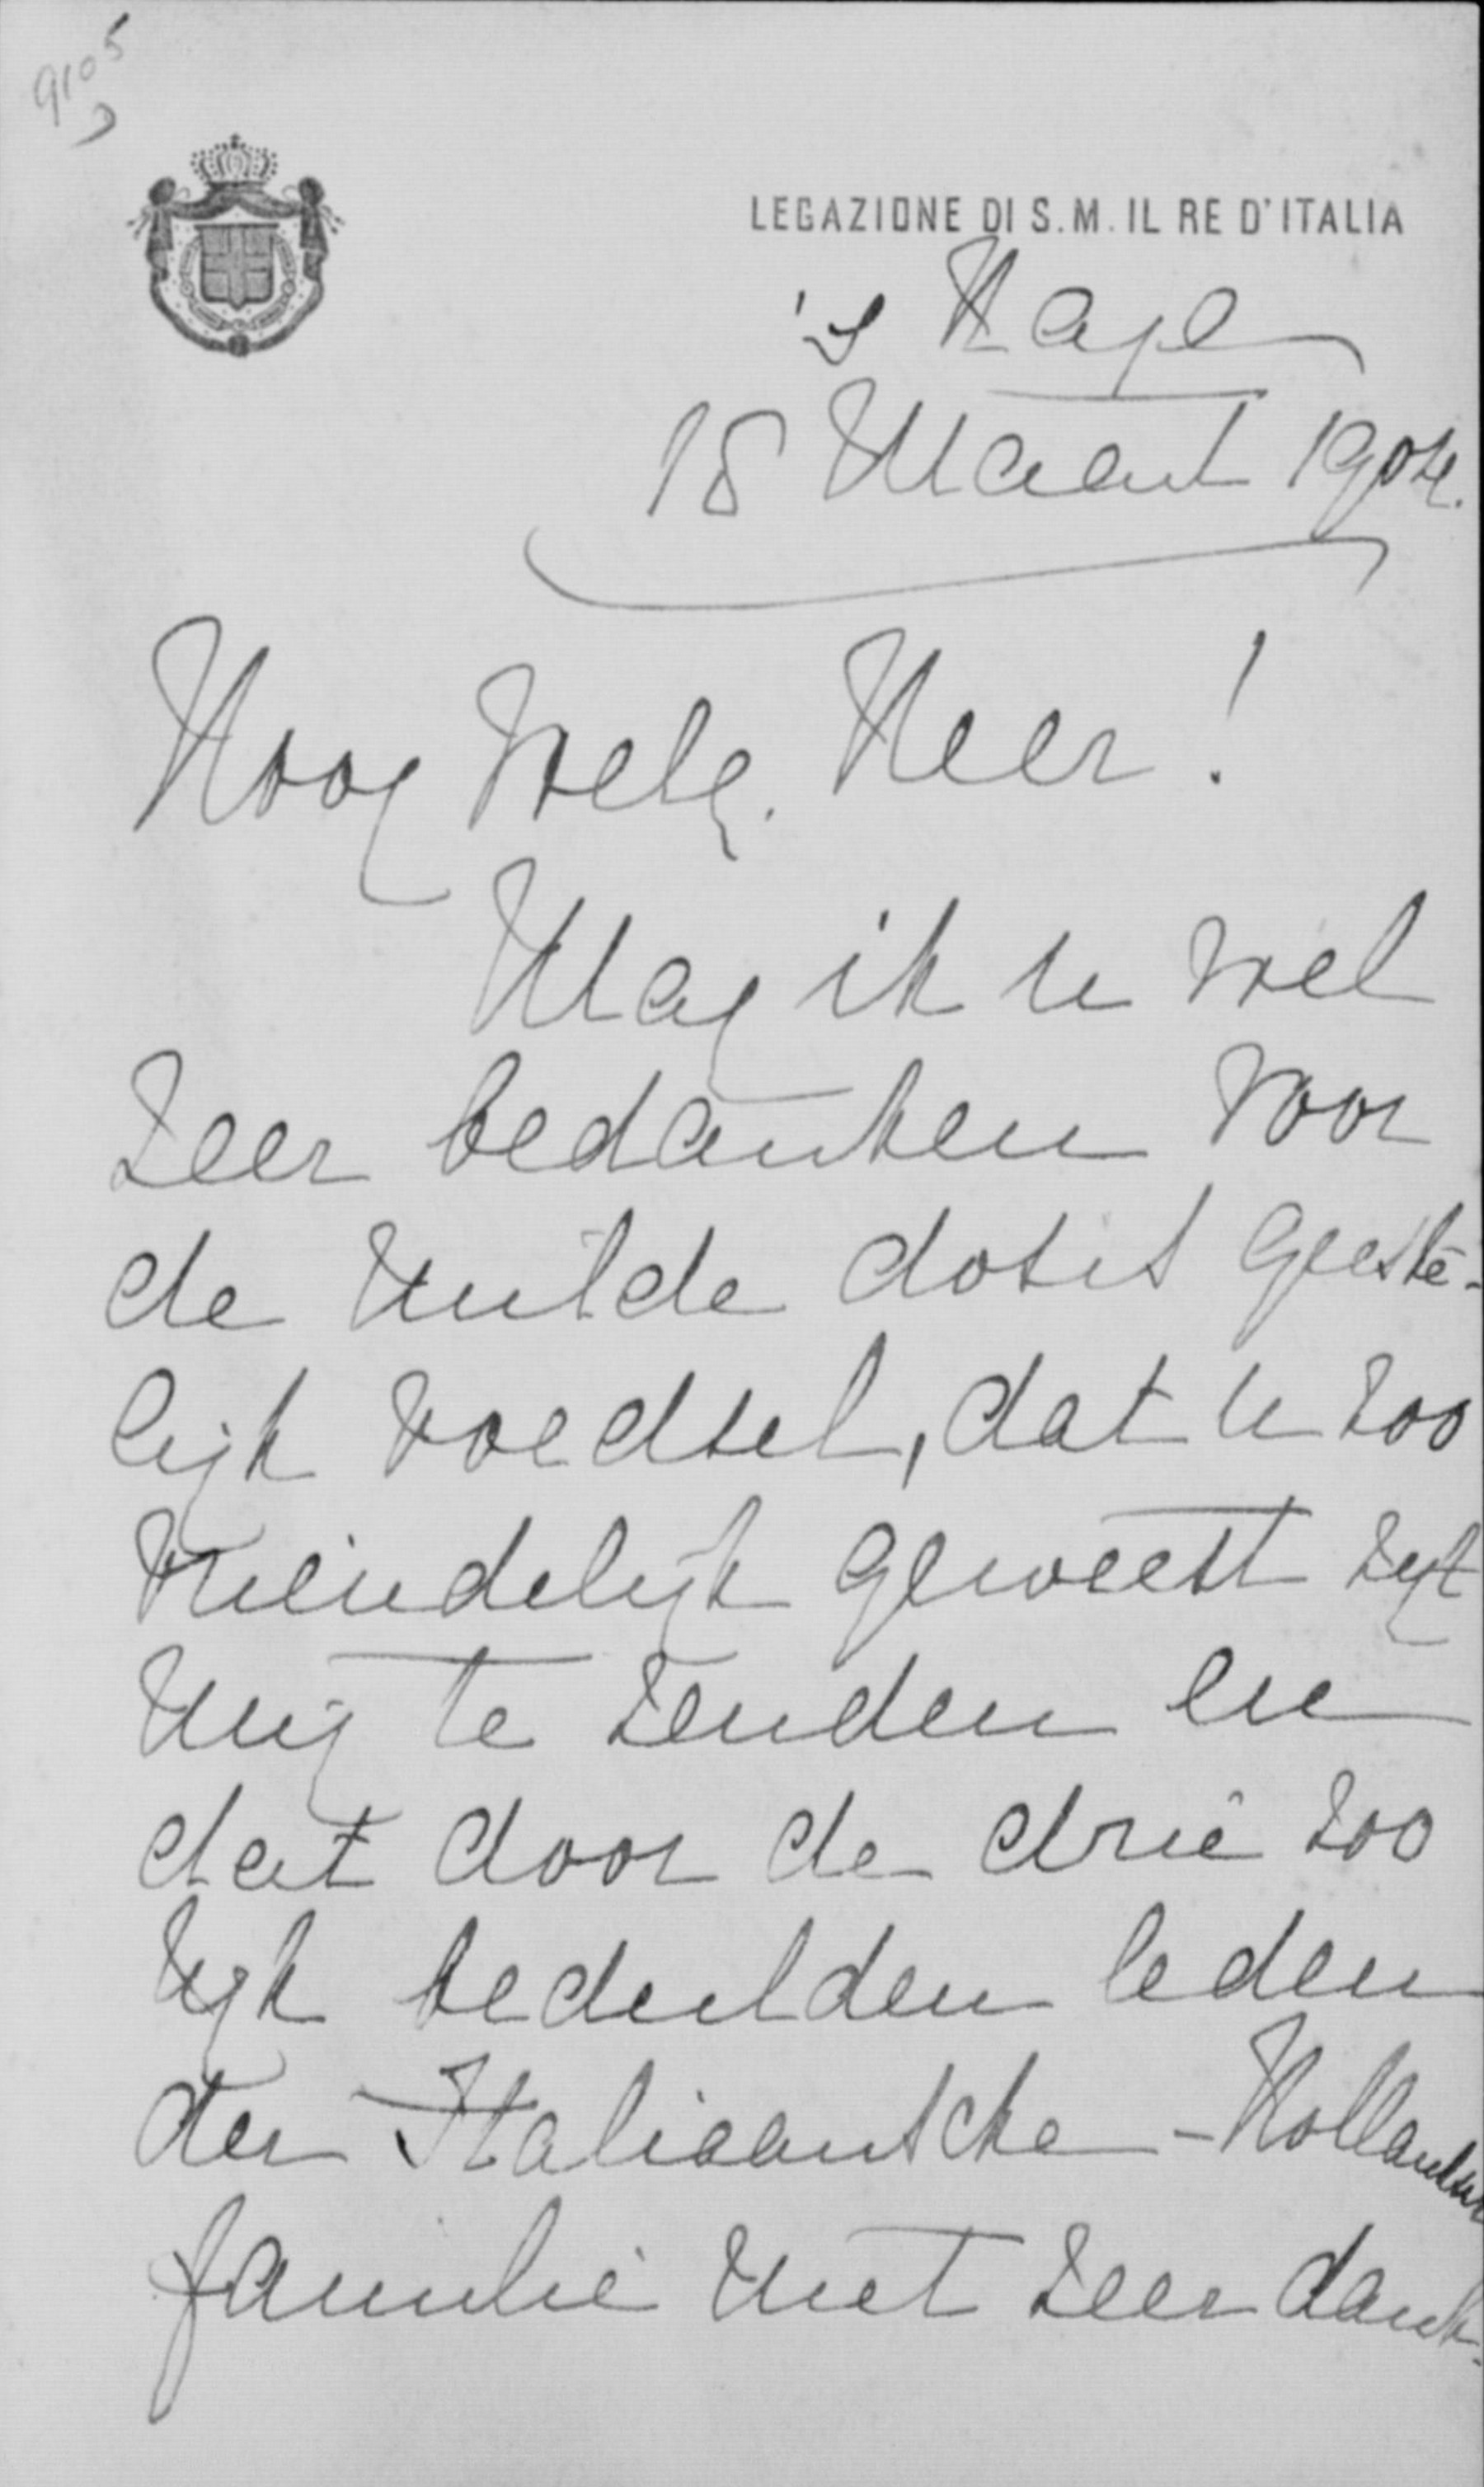 9105
LEGAZIONE DI S.M. IL RE D'ITALIA
's Hage
18 Maart 1904.
Hoog Welg. Heer!
Mag ik u wel
zeer bedanken voor
de milde dosis geeste-
lijk voedsel, dat u zoo
vriendelijk geweest zijt
mij te zenden en
dat door de drie zoo
rijk bedeelden leden
der Italiaansche-Hollandsche
familie met zeer dank-